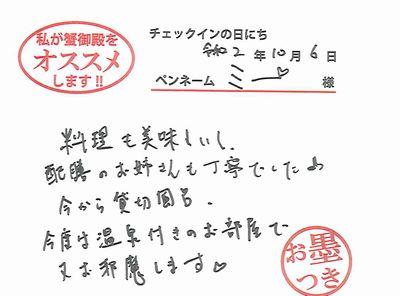 私が蟹御殿を
オススメ
します!!
チェックインの日にち
令和2年10月6日
ペンネーム ミー 様
料理も美味しいし、
配膳のお姉さんも丁寧でした♪
今から貸切風呂、
今度は温泉付きのお部屋で
又お邪魔します♡
お墨
つき